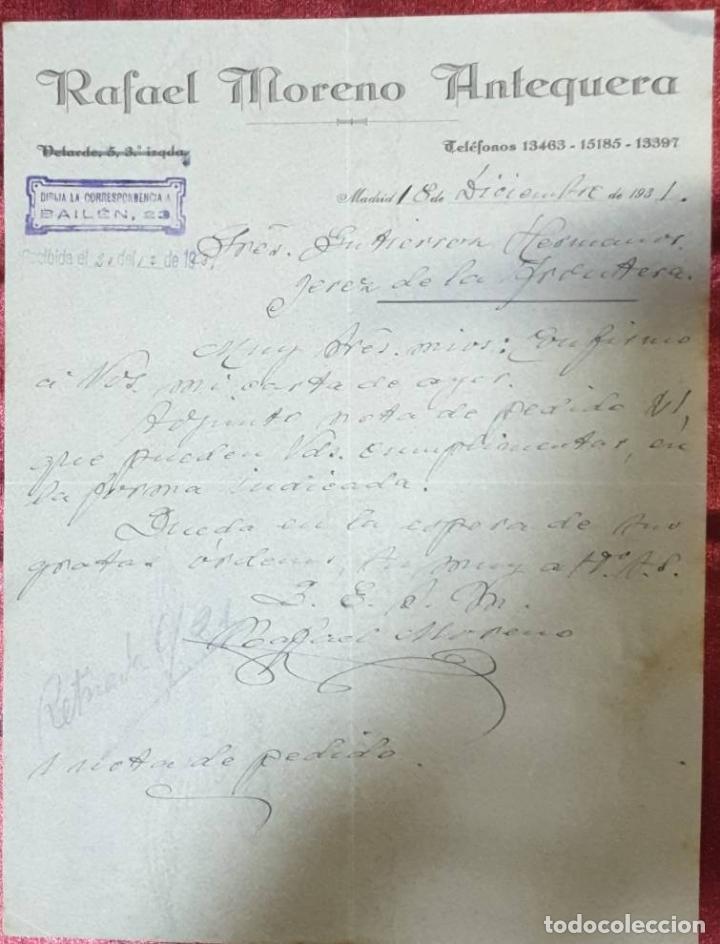 Rafael Moreno Antequera
Velarde, 5, 3.º izqda.
Teléfonos 13463 - 15185 - 13397
DIRIJA LA CORRESPONDENCIA A
BAILÉN, 23
Madrid 18 de Diciembre de 1931.
Recibida el 21 del 12 de 193
Srês. Gutierrez Hermanos.
Jerez de la Frontera.
Muy Srês. mios: Confirmo
á Vds. mi carta de ayer.
Adjunto nota de pedido
que pueden Vds. cumplimentar, en
la forma indicada.
Queda en la espera de sus
gratas órdenes, su muy a
Rafael Moreno
1 nota de pedido.
todocoleccion